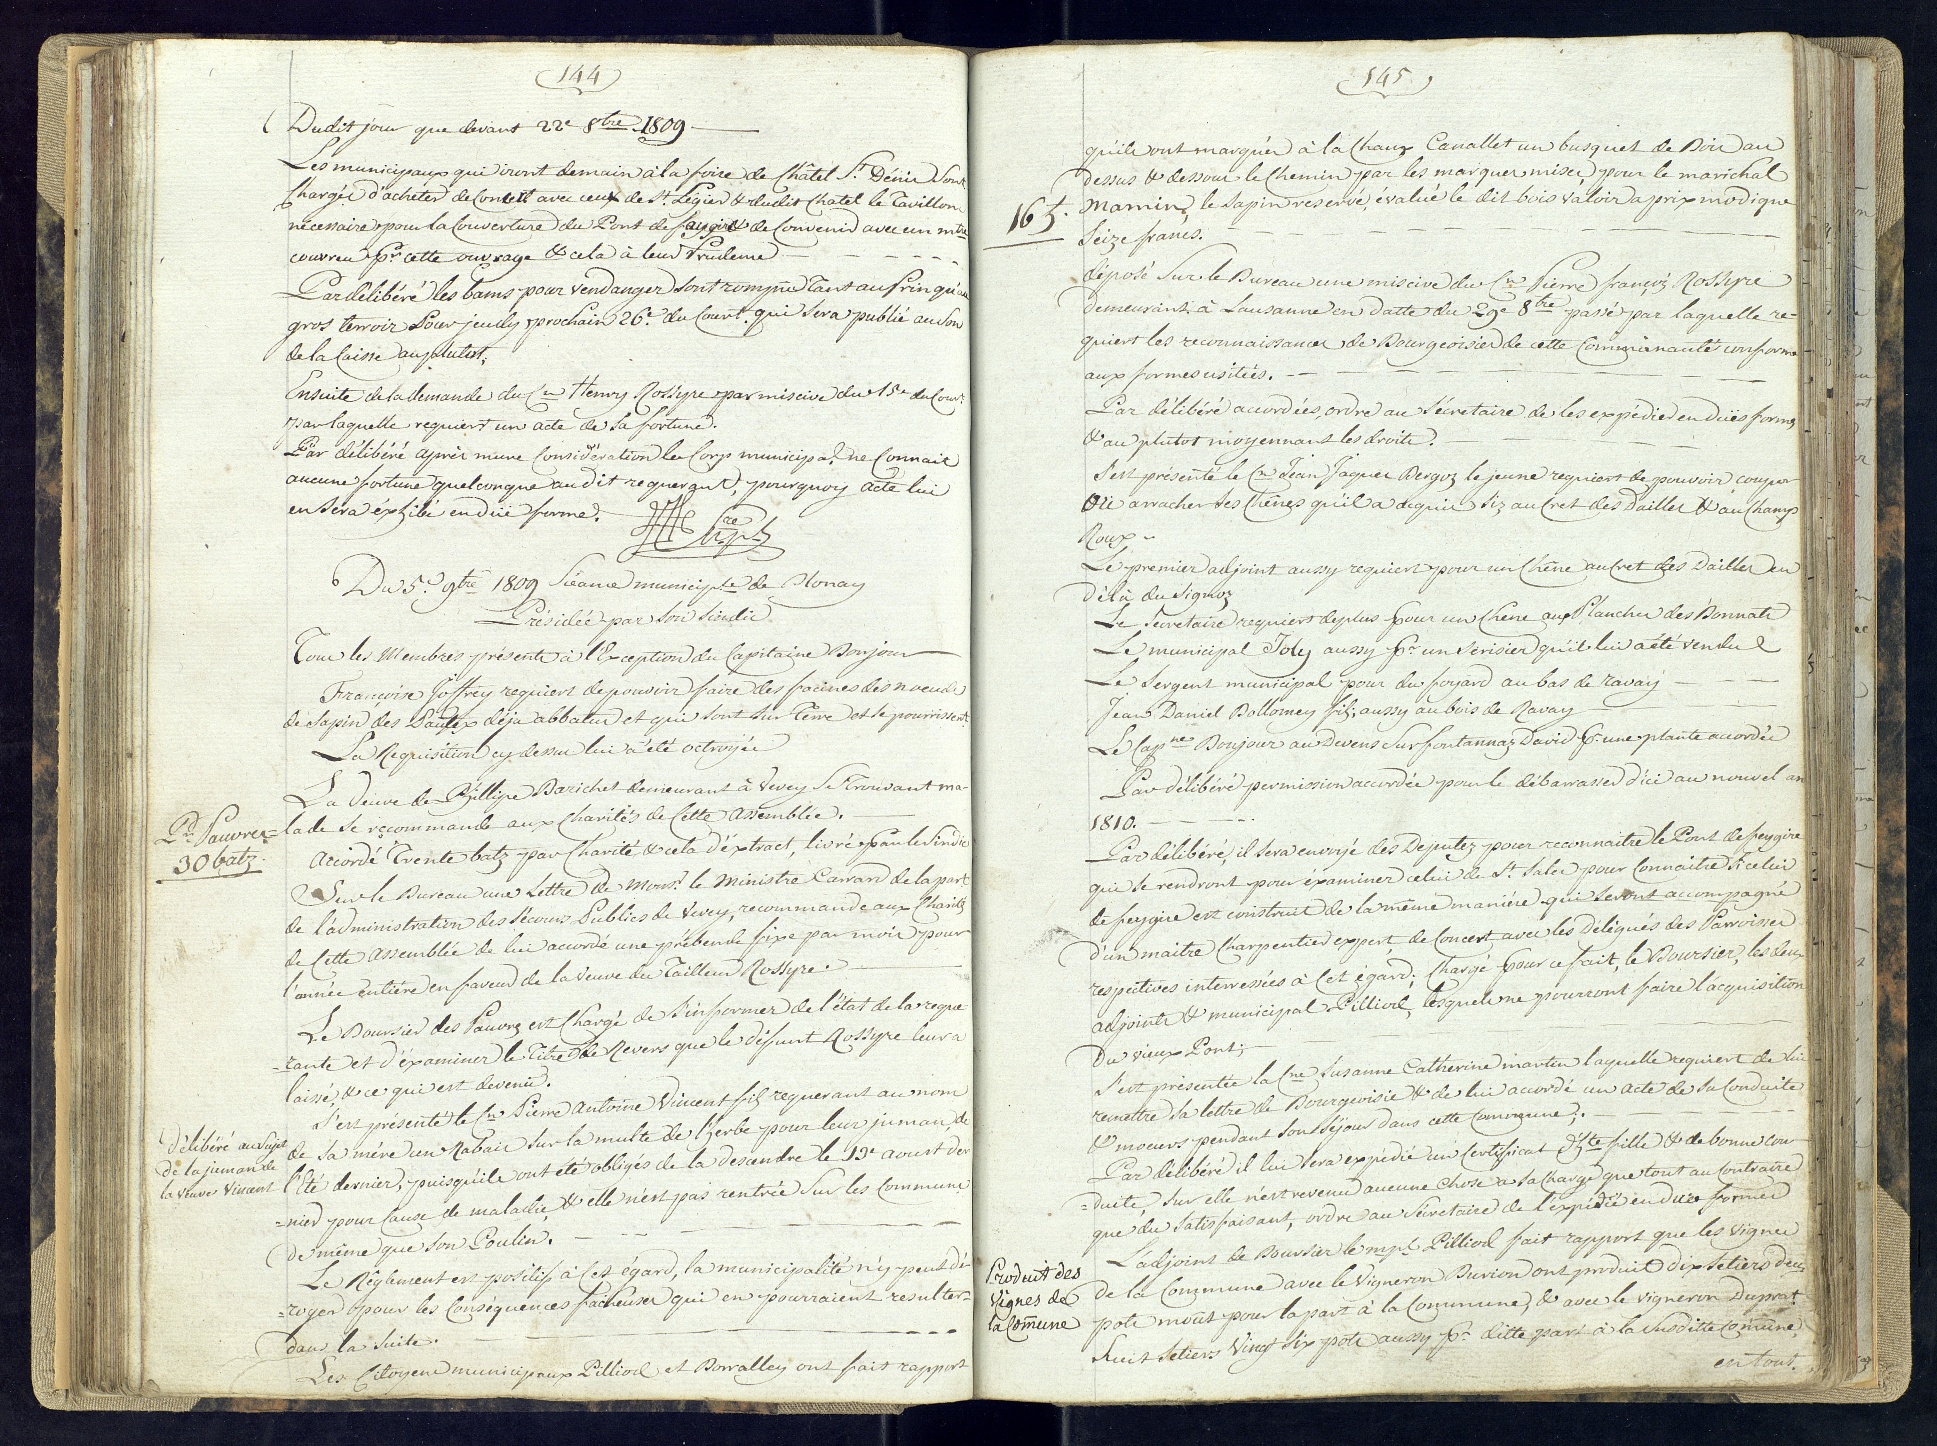 144
Dudit jour que devant 22e 8bre 1809
Les municipaux qui iront demain à la foire de Châtel St. Dénis sont
Chargés d'acheter de Concert avec ceux de St. Légier & dudit Chatel le Tavillon
nécessaire pour la Couverture du Pont de feygire & de Convenir avec un mtre
couvreu pr. cette ouvrage & cela à leur Prudence
Par délibéré les bams pour vendanger sont rompu Tant au frin qu'au
gros terroir Pour jeudy prochain 26e. du Court. qui sera publié au son
de la Caisse au plutot.
Ensuite de la demande du Cen Henry Rossyre par miscive du 15e du Cour.
par laquelle requiert un acte de sa fortune.
Par délibéré après mure Considération le Corps municipal ne Connait
aucune fortune quelconque au dit requerant, pourquoy acte lui
en sera éxhibé en düe forme.
Du 5e. 9bre 1809 Séance municiple de Blonay
Présidée par son sindic
Tous les Membres présents à l'Exception du Capitaine Bonjour
Françoise Joffrey requiert de pouvoir faire des facines des noeuds
de sapin des Pautex déja abbatus et qui sont sur Terre et se pourrissent
La Requisition cy dessus lui a été octroyée
La Veuve de Phillipe Barichet demeurant à Vevey se Trouvant ma-
lade se recommande aux Charités de Cette Assemblée.
Pr. Pauvres
30 batz.
Accordé Trente batz par Charité & cela d'éxtract, livré par le Sindic
Sur le Bureau une Lettre de Monsr. le Ministre Carrard de la part
de l'administration des sécours Publics de Vevey, recommande aux Charités
de Cette Assemblée de lui accordé une prébende fixe par mois pour
l'année entière en faveur de la veuve du Tailleur Rossyre.
Le Boursier des Pauvres est Chargé de s'informer de l'état de la reque
=rante et d'éxaminer le Titre de Revers que le défunt Rossyre leur a
laissé, & ce qui est devenu.
S'est présenté le Cn Pierre Antoine Vincent fils requerant au nom
Délibéré au sujet
de la jument de
la veuve Vincent
de sa mére un Rabais sur la multe de l'herbe pour leur jument, de
l'été dernier, puisqu'ils ont été obligés de la descendre le 19e aoust der
=nier pour Cause de maladie, & elle n'est pas rentrée sur les Commune
de même que son Poulin.
Le Règlement est positif à Cet égard, la municipalité n'y peut dé
=roger pour les Conséquences facheuses qui en pourraient resulter
dans la suite.
Les Citoyens municipaux Pilliod et Borralley ont fait rapport
145
qu'ils ont marqués à la Chaux Cavallet un busquet de Bois au
dessus & dessous le Chemin par les marques mises pour le marèchal
16 f.
Mamin, le sapin reservé, évalué le dit bois valoir a prix modique
Seize francs.
déposé sur le Bureau une miscive du Cn Pierre françois Rossyre
demeurant à Lausanne en datte du 29e 8bre passé par laquelle re-
quiert les reconnaissances de Bourgeoisies de cette Communauté conforme
aux formes usitées.
Par délibéré accordées, ordre au Sécretaire de les expédier en düe forme
& au plutot moyennans les droits.
S'est présenté le Cn Jean Jaques Bergoz le jeune requiert de pouvoir couper
Ou arracher ses Chênes qu'il a acquis siz au Cret des Dailles & au Champ
Roux
Le premier adjoint aussy requiert pour un Chêne au Cret des Dailles en
déla du signoz
Le Secretaire requiert de plus pour un Chêne aux Planches des Bonnats
Le municipal Joly aussy pr. un Serisier qu'il lui a été vendu
Le Sergent municipal pour du foyard au bas de ravay
Jean Daniel Bottomey fils aussy au bois de Ravay
Le Capne Bonjour au Devens sur fontannaz David pr. une plante accordée
Par délibéré permission accordée pour le débarrasser d'ici au nouvel an
1810.
Par délibéré, il sera envoyé des Deputez pour reconnaitre le Pont de feygire
qui se rendront pour éxaminer celui de St. Sales pour Connaître si celui
de feygire est construit de la même maniére qui seront accompagné
d'un maitre Charpentier expert de Concert avec les délégués des Parroisses
respectives interressées à Cet égard; Chargé pour ce fait, le Boursier, les deux
adjoints & municipal Pilliod, lesquels ne pourront faire l'acquisition
du vieux Pont;
S'est présentée la Cne Susanne Catherine martin laquelle requiert de lui
remettre sa lettre de Bourgeoisie & de lui accordé un acte de sa Conduite
& moeurs pendant son Séjour dans cette Commune;
Par délibéré il lui sera expédié un Certificat d'hte fille & de bonne con
=duite, sur elle n'est revenu aucune Chose a sa Charge que tout au Contraire
que du satisfaisant, ordre au Sécretaire de l'expédié en dües formes
L'adjoint de Boursier le mpl. Pilliod fait rapport que les vignes
Produit des
Vignes de
la Comune
de la Commune avec le Vigneron Burion ont produit dix setiers deux
pots mout pour la part à la Commune, & avec le vigneron Duprat
huit setiers Vingt six pots aussy pr. ditte part à la susditte Comune,
en tout.